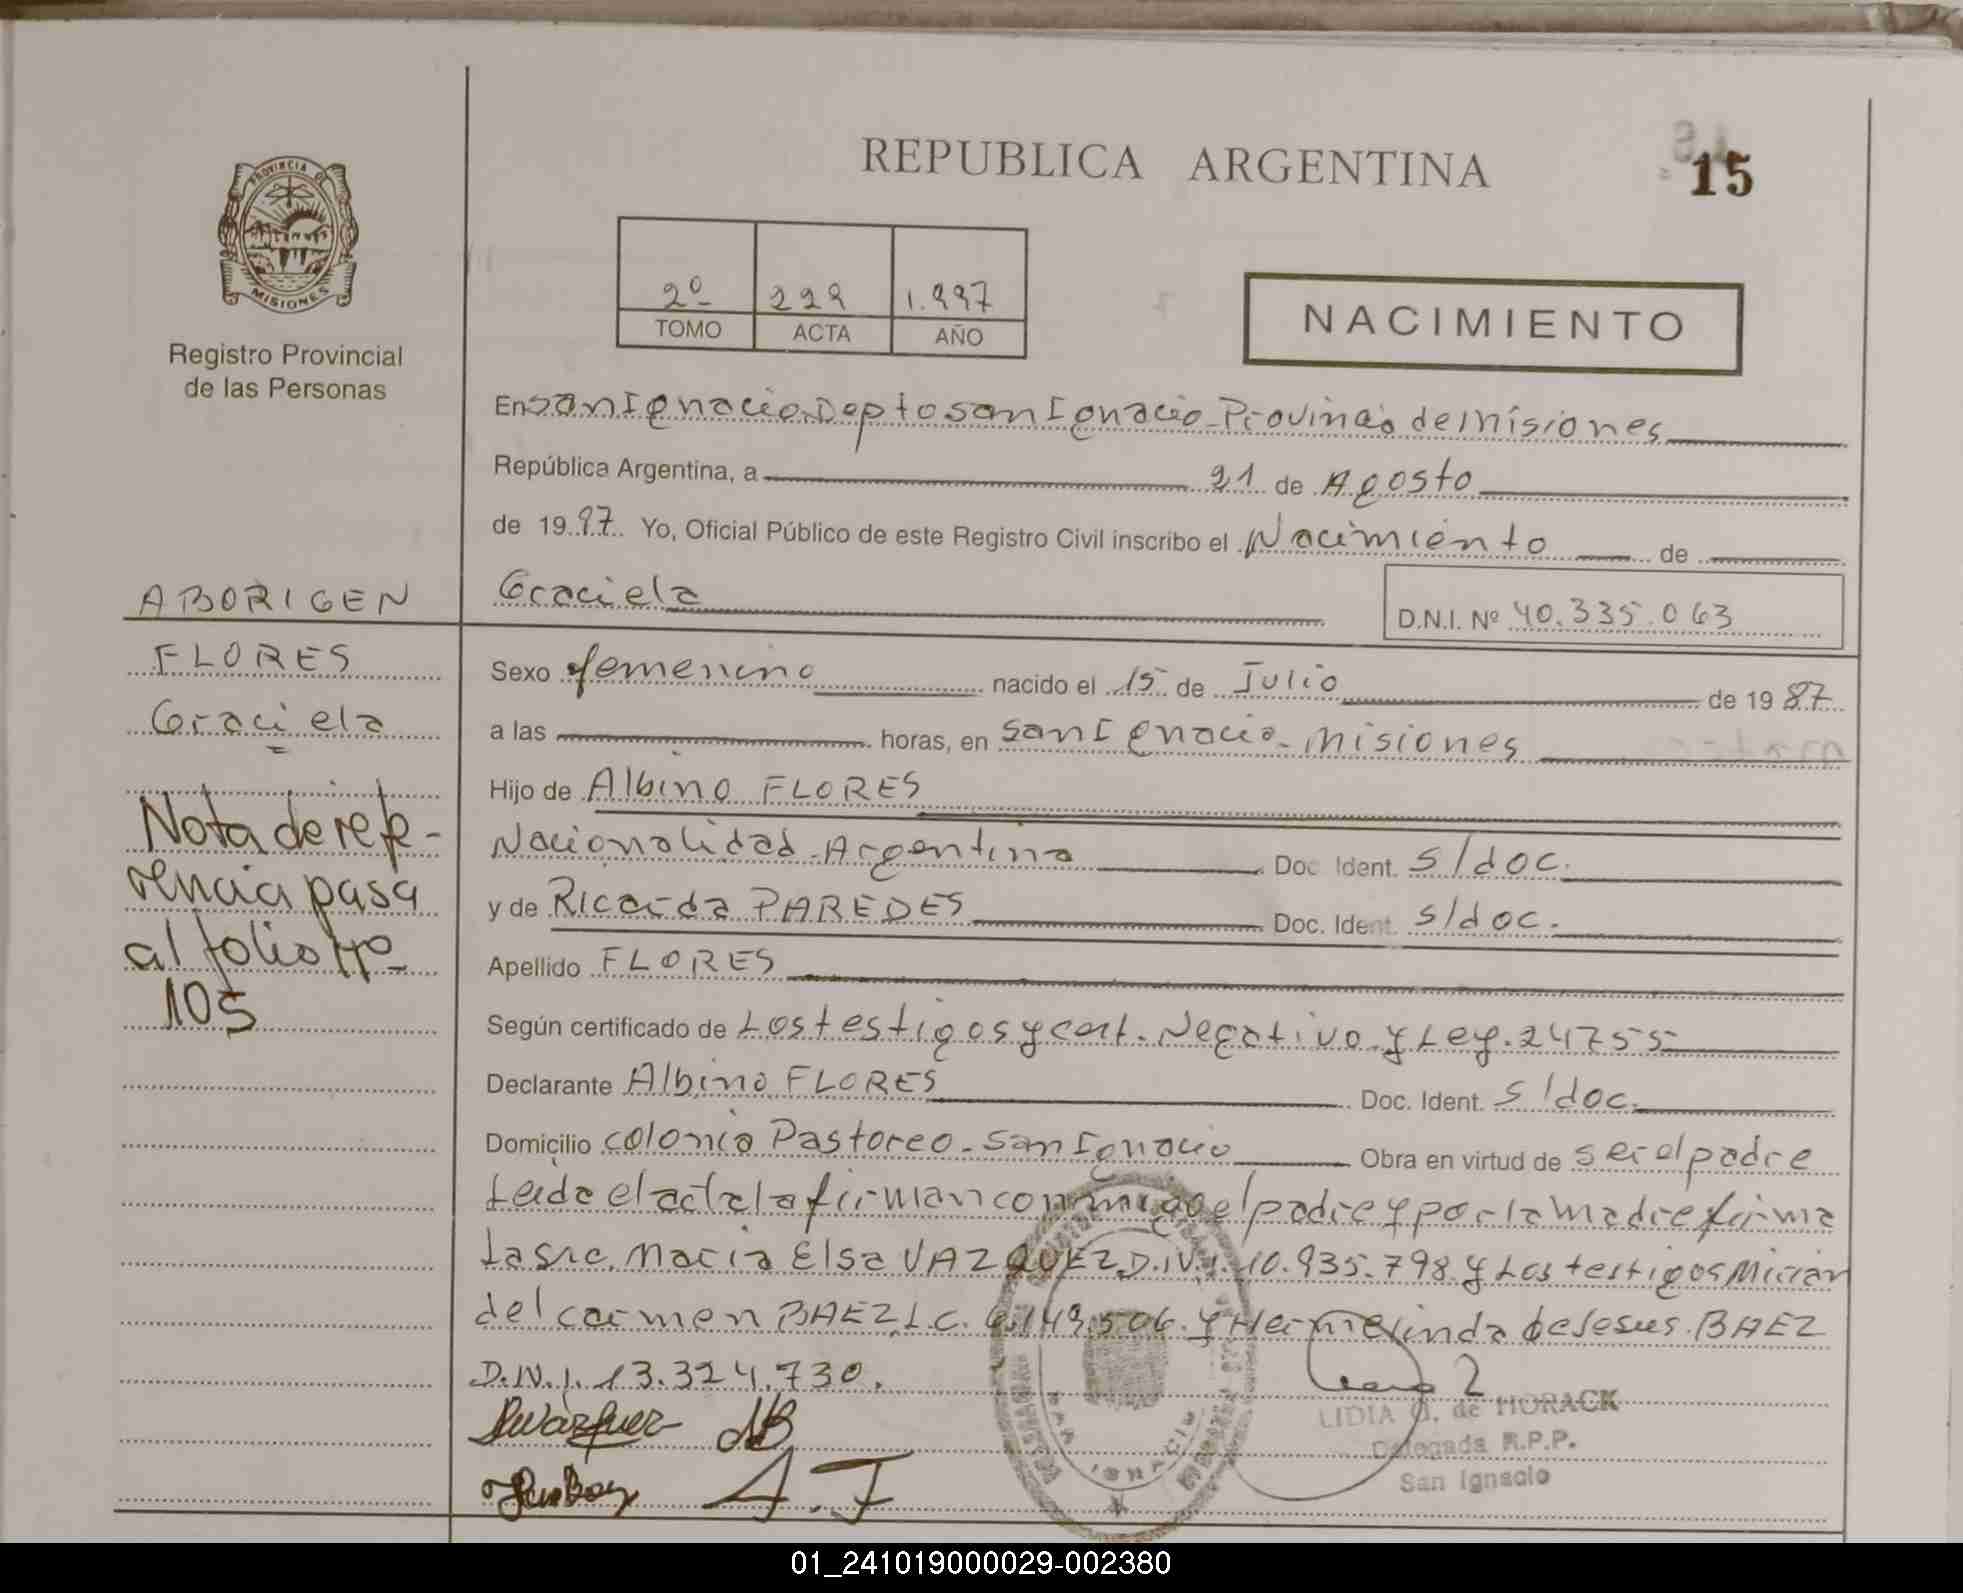 REPUBLICA ARGENTINA
15
PROVINCIA DE
MISIONES
Registro Provincial
de las Personas
2º 229 1.997
TOMO ACTA AÑO
NACIMIENTO
En San Ignacio Depto San Ignacio - Provincia de Misiones
República Argentina, a 21 de Agosto
de 1997 Yo, Oficial Público de este Registro Civil inscribo el Nacimiento de
Graciela
D.N.I. Nº 40.335.063
ABORIGEN
FLORES
Graciela
Nota de refe-
rencia pasa
al folio Nº
105
Sexo femenino nacido el 15 de Julio de 1987
a las horas, en San Ignacio - Misiones
Hijo de Albino FLORES
Nacionalidad - Argentina Doc Ident. S/doc.
y de Ricarda PAREDES Doc. Ident. S/doc.
Apellido FLORES
Según certificado de Los testigos y cert. Negativo y Ley. 24755
Declarante Albino FLORES Doc. Ident. S/doc.
Domicilio colonia Pastoreo - San Ignacio Obra en virtud de ser el padre
Leida el acta la firman conmigo el padre y por la madre firma
la sra. Maria Elsa VAZQUEZ D.N.I. 10.935.798 y Los testigos Mirian
del carmen BAEZ L.C. 6.149.506. y Hermelinda de Jesus BAEZ
D.N.I. 13.324.730.
A.F
LIDIA G. de HORACK
Delegada R.P.P.
San Ignacio
01_241019000029-002380